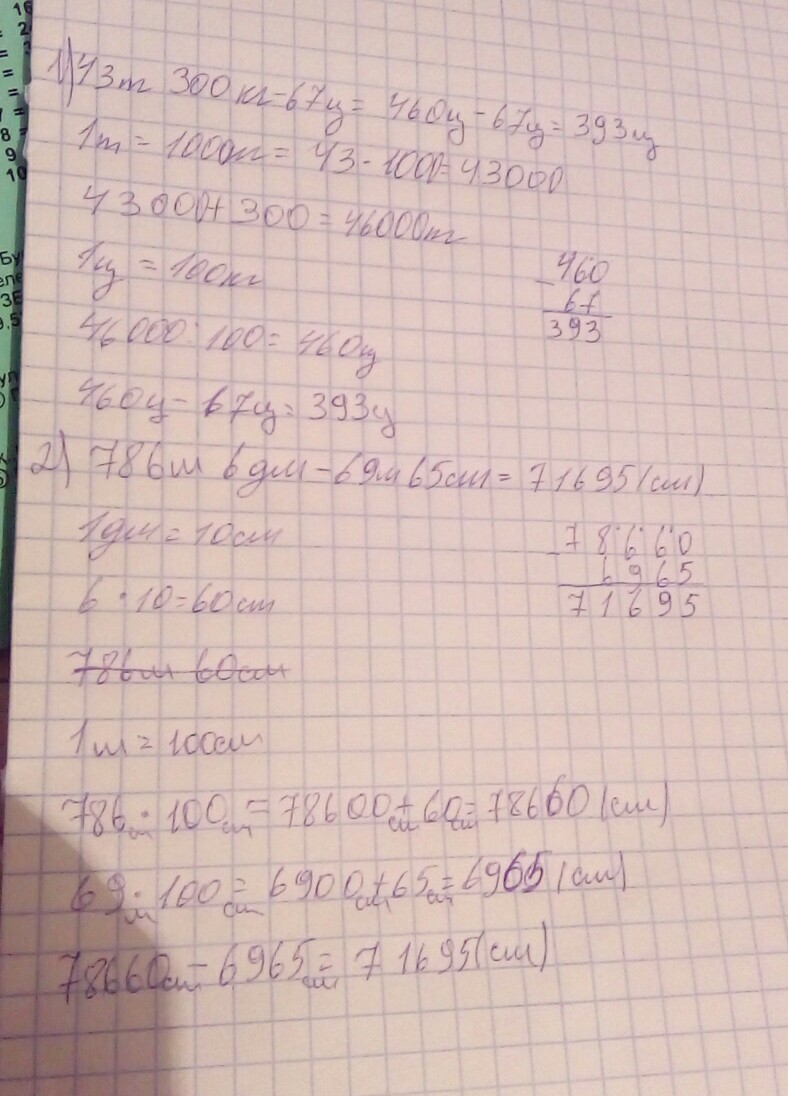 1) 43т 300кг-67ц= 460ц-67ц=393ц
1т = 1000кг= 43·1000=43000
43000+300=46000т
1ц = 100кг
460
- 67
393
46000:100=460ц
460ц-67ц=393ц
2) 786м 6дм-69м65см=71695(см)
1дм=10см
78660
- 6965
71695
6·10=60см
786м 60см
1м=100см
786м·100см=78600см+60см=78660(см)
69м·100см=6900см+65см=6965(см)
78660см-6965см=71695(см)